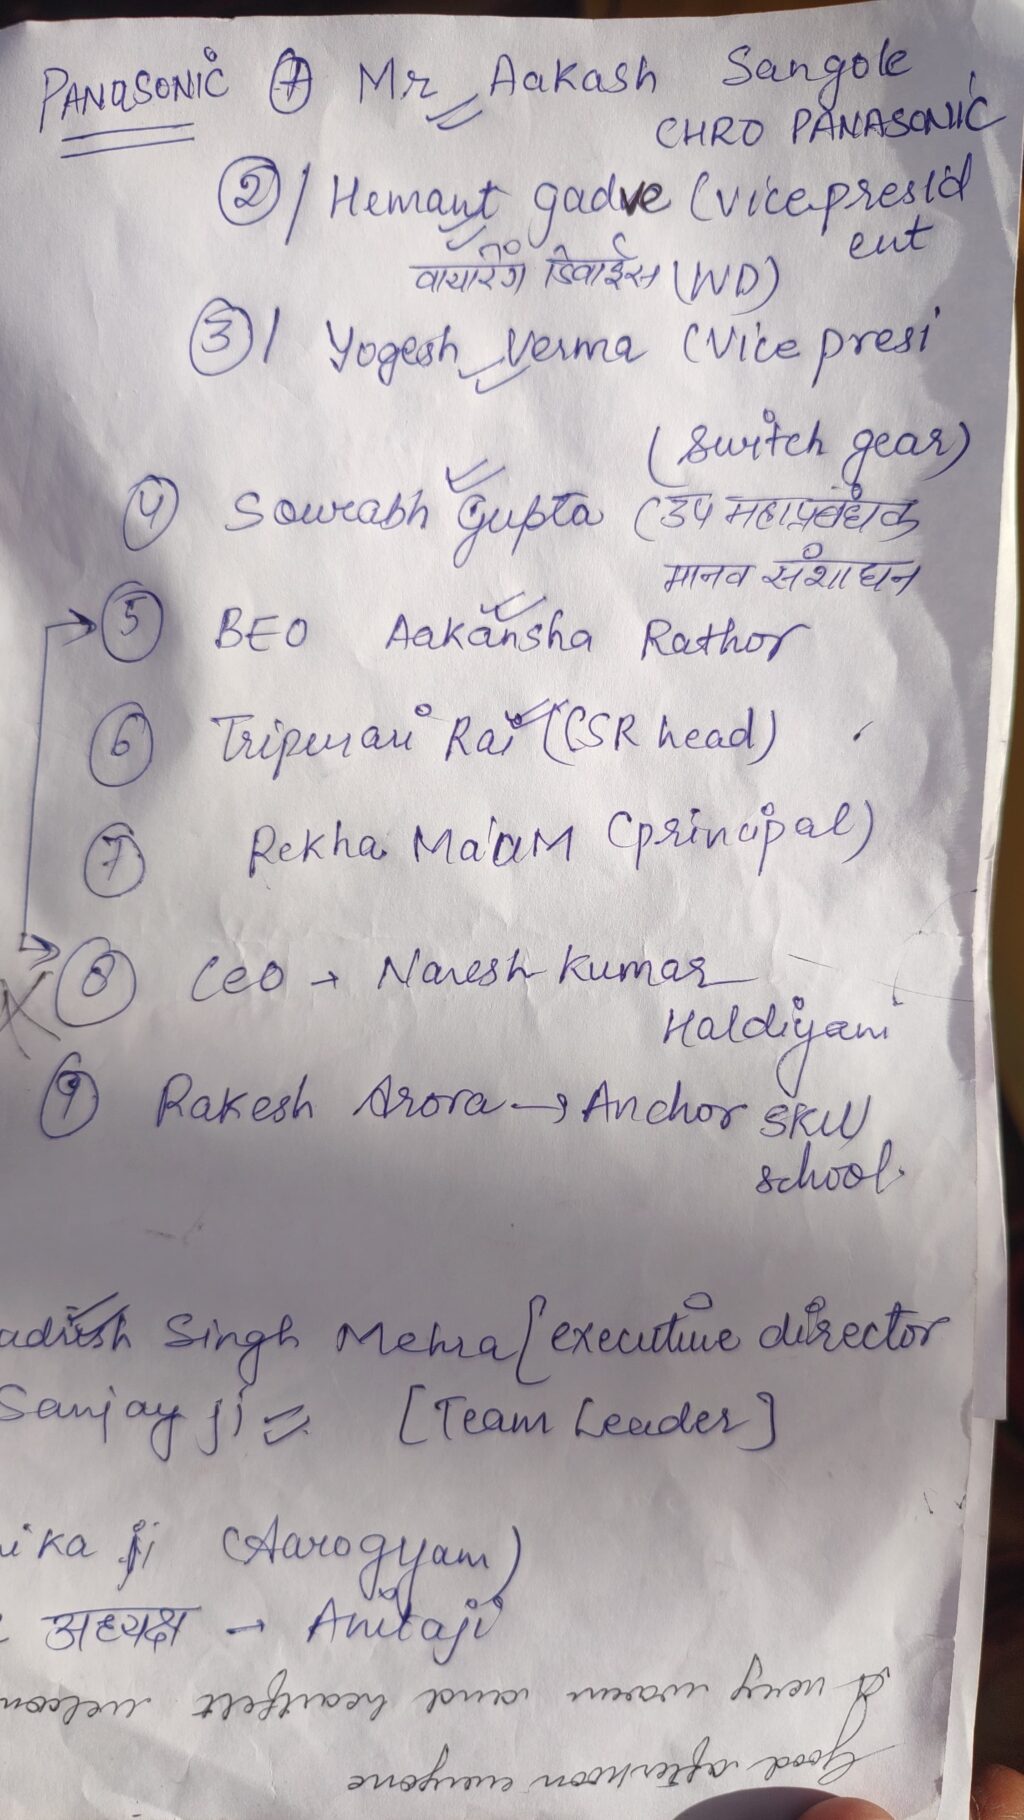 PANASONIC ① Mr Aakash Sangole
CHRO PANASONIC
②/ Hemant gadve (vice presid
ent
वायरिंग डिवाईस (WD)
③/ Yogesh Verma (Vice presi
(switch gear)
④ Sourabh Gupta (उप महाप्रबंधक
मानव संशाधन
⑤ BEO Aakansha Rathor
⑥ Tripurari Rai (CSR head)
⑦ Rekha Ma'aM (principal)
⑧ CEO → Naresh Kumar
Haldiyani
⑨ Rakesh Arora → Anchor Skill
school.
Singh Mehra [executive director
Sanjay ji [Team Leader]
ika ji (Aarogyam)
अध्यक्ष → Anitaji
Good afternoon everyone
A very warm and heartfelt welcom